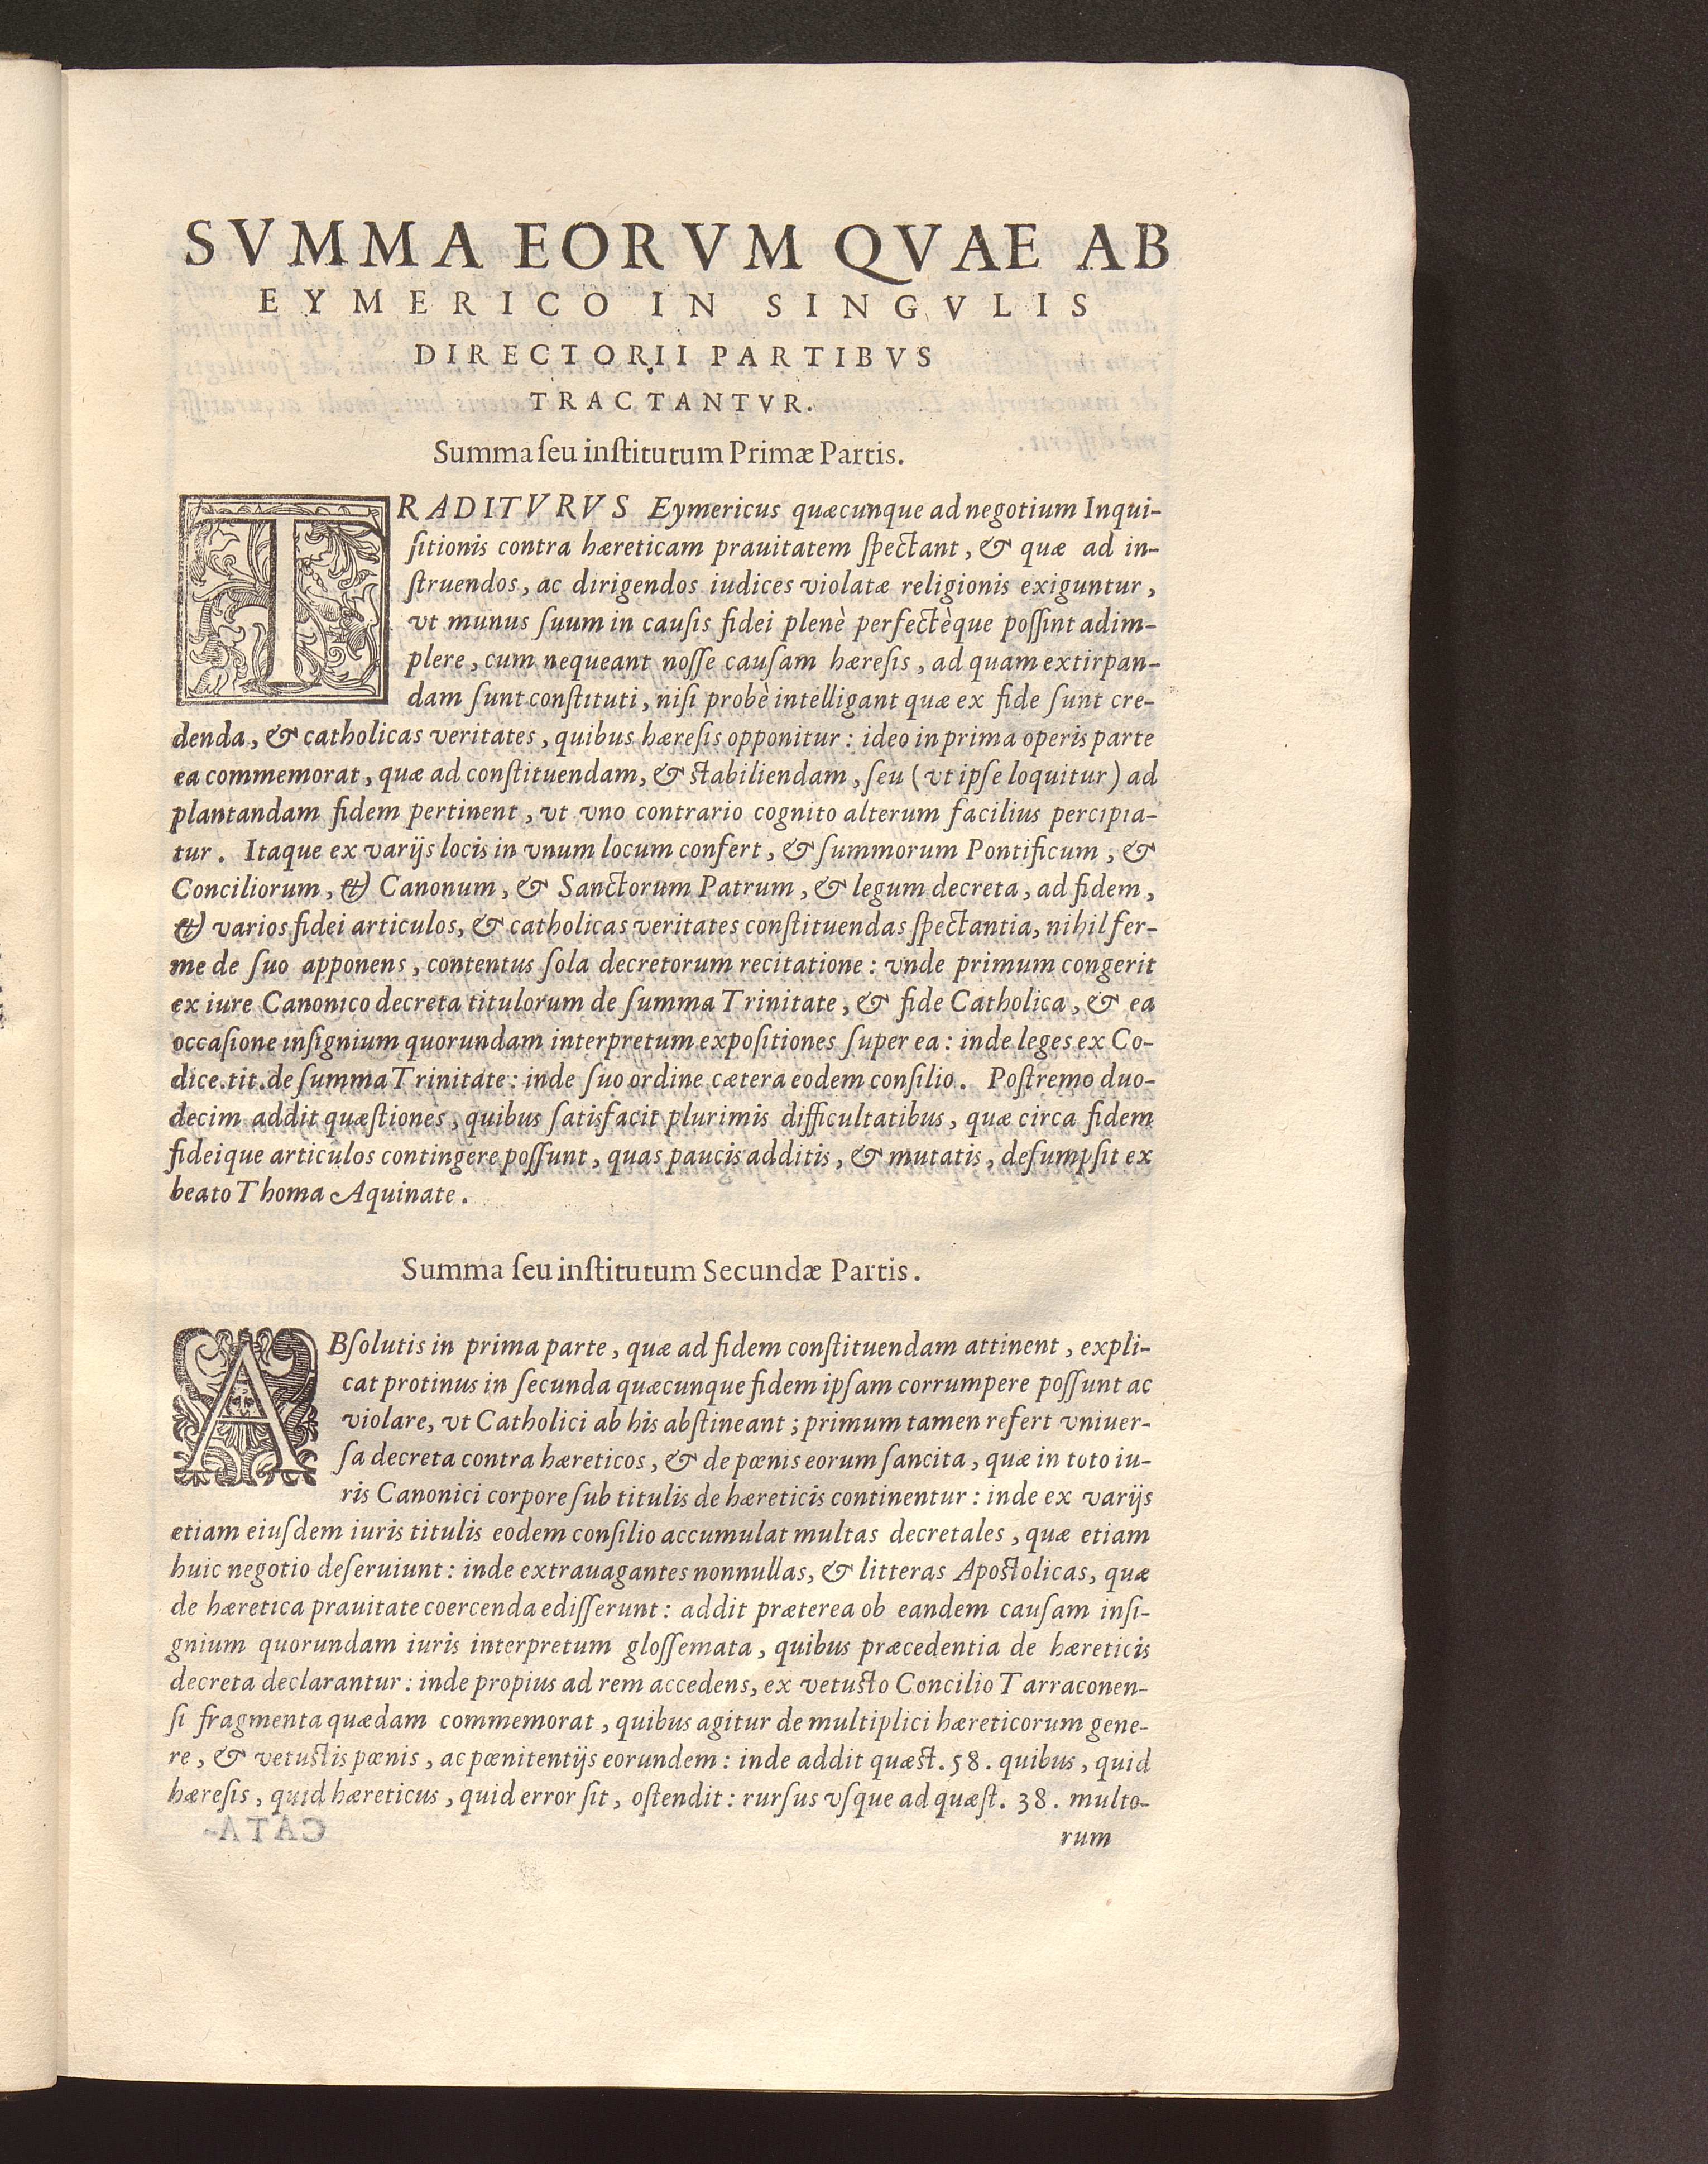 SVMMA EORVM QVAE AB
EYMERICO IN SINGVLIS
DIRECTORII PARTIBVS
TRACTANTVR.
Summa ſeu inſtitutum Primæ Partis.
TRADITVRVS Eymericus quæcunque ad negotium Inqui-
ſitionis contra hæreticam prauitatem ſpectant, & quæ ad in-
ſtruendos, ac dirigendos iudices violatæ religionis exiguntur,
vt munus ſuum in cauſis fidei plenè perfectèque poſſint adim-
plere, cum nequeant noſſe cauſam hæreſis, ad quam extirpan-
dam ſunt conſtituti, niſi probè intelligant quæ ex fide ſunt cre-
denda, & catholicas veritates, quibus hæreſis opponitur: ideo in prima operis parte
ea commemorat, quæ ad conſtituendam, & stabiliendam, ſeu (vt ipſe loquitur) ad
plantandam fidem pertinent, vt vno contrario cognito alterum facilius percipia-
tur. Itaque ex varijs locis in vnum locum confert, & ſummorum Pontificum, &
Conciliorum, & Canonum, & Sanctorum Patrum, & legum decreta, ad fidem,
& varios fidei articulos, & catholicas veritates conſtituendas ſpectantia, nihil fer-
me de ſuo apponens, contentus ſola decretorum recitatione: vnde primum congerit
ex iure Canonico decreta titulorum de ſumma Trinitate, & fide Catholica, & ea
occaſione inſignium quorundam interpretum expoſitiones ſuper ea: inde leges ex Co-
dice.tit.de ſumma Trinitate: inde ſuo ordine cætera eodem conſilio. Poſtremo duo-
decim addit quæſtiones, quibus ſatisfacit plurimis difficultatibus, quæ circa fidem
fideique articulos contingere poſſunt, quas paucis additis, & mutatis, deſumpſit ex
beato Thoma Aquinate.
Summa ſeu inſtitutum Secundæ Partis.
ABſolutis in prima parte, quæ ad fidem conſtituendam attinent, expli-
cat protinus in ſecunda quæcunque fidem ipſam corrumpere poſſunt ac
violare, vt Catholici ab his abſtineant; primum tamen refert vniuer-
ſa decreta contra hæreticos, & de pœnis eorum ſancita, quæ in toto iu-
ris Canonici corpore ſub titulis de hæreticis continentur: inde ex varijs
etiam eiuſdem iuris titulis eodem conſilio accumulat multas decretales, quæ etiam
huic negotio deſeruiunt: inde extrauagantes nonnullas, & litteras Apostolicas, quæ
de hæretica prauitate coercenda ediſſerunt: addit præterea ob eandem cauſam inſi-
gnium quorundam iuris interpretum gloſſemata, quibus præcedentia de hæreticis
decreta declarantur: inde propius ad rem accedens, ex vetusto Concilio Tarraconen-
ſi fragmenta quædam commemorat, quibus agitur de multiplici hæreticorum gene-
re, & vetustis pœnis, ac pœnitentijs eorundem: inde addit quæst. 58. quibus, quid
hæreſis, quid hæreticus, quid error ſit, oſtendit: rurſus vſque ad quæſt. 38. multo-
rum